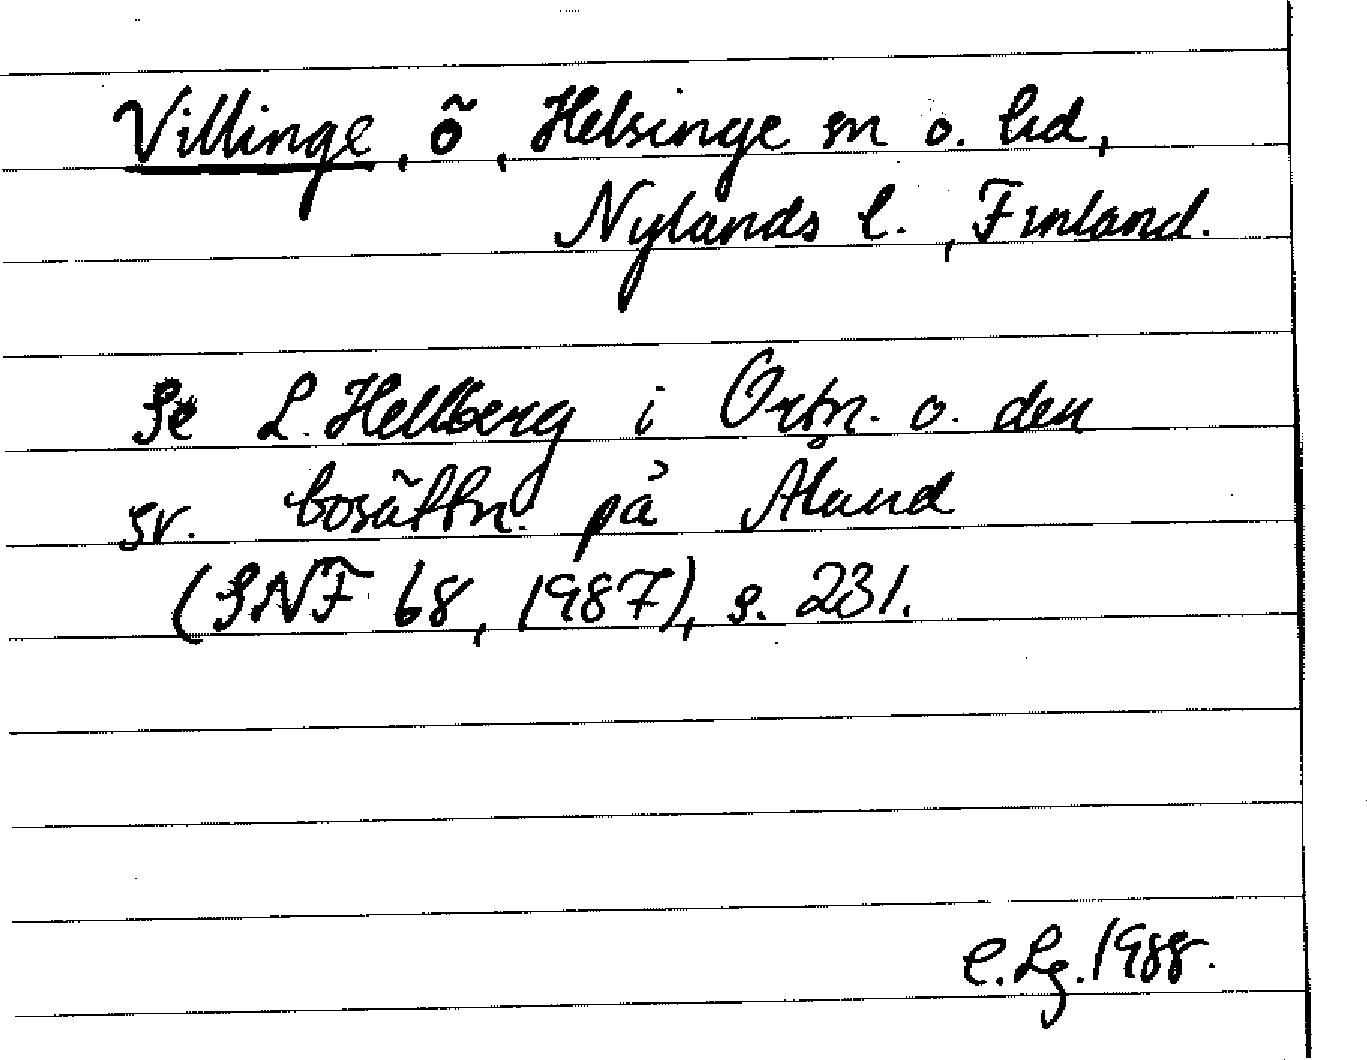 Villinge, ö, Helsinge sn o. hd,
Nylands l., Finland.
Se L. Hellberg i Ortn. o. den
sv. bosättn. på Åland
(SNF 68, 1987), s. 231.
C. Lg. 1988.